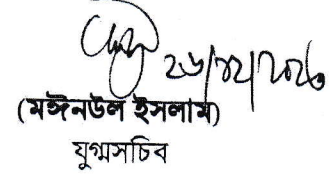 ২৬/১২/২০২৩
(মঈনউল ইসলাম)
যুগ্মসচিব